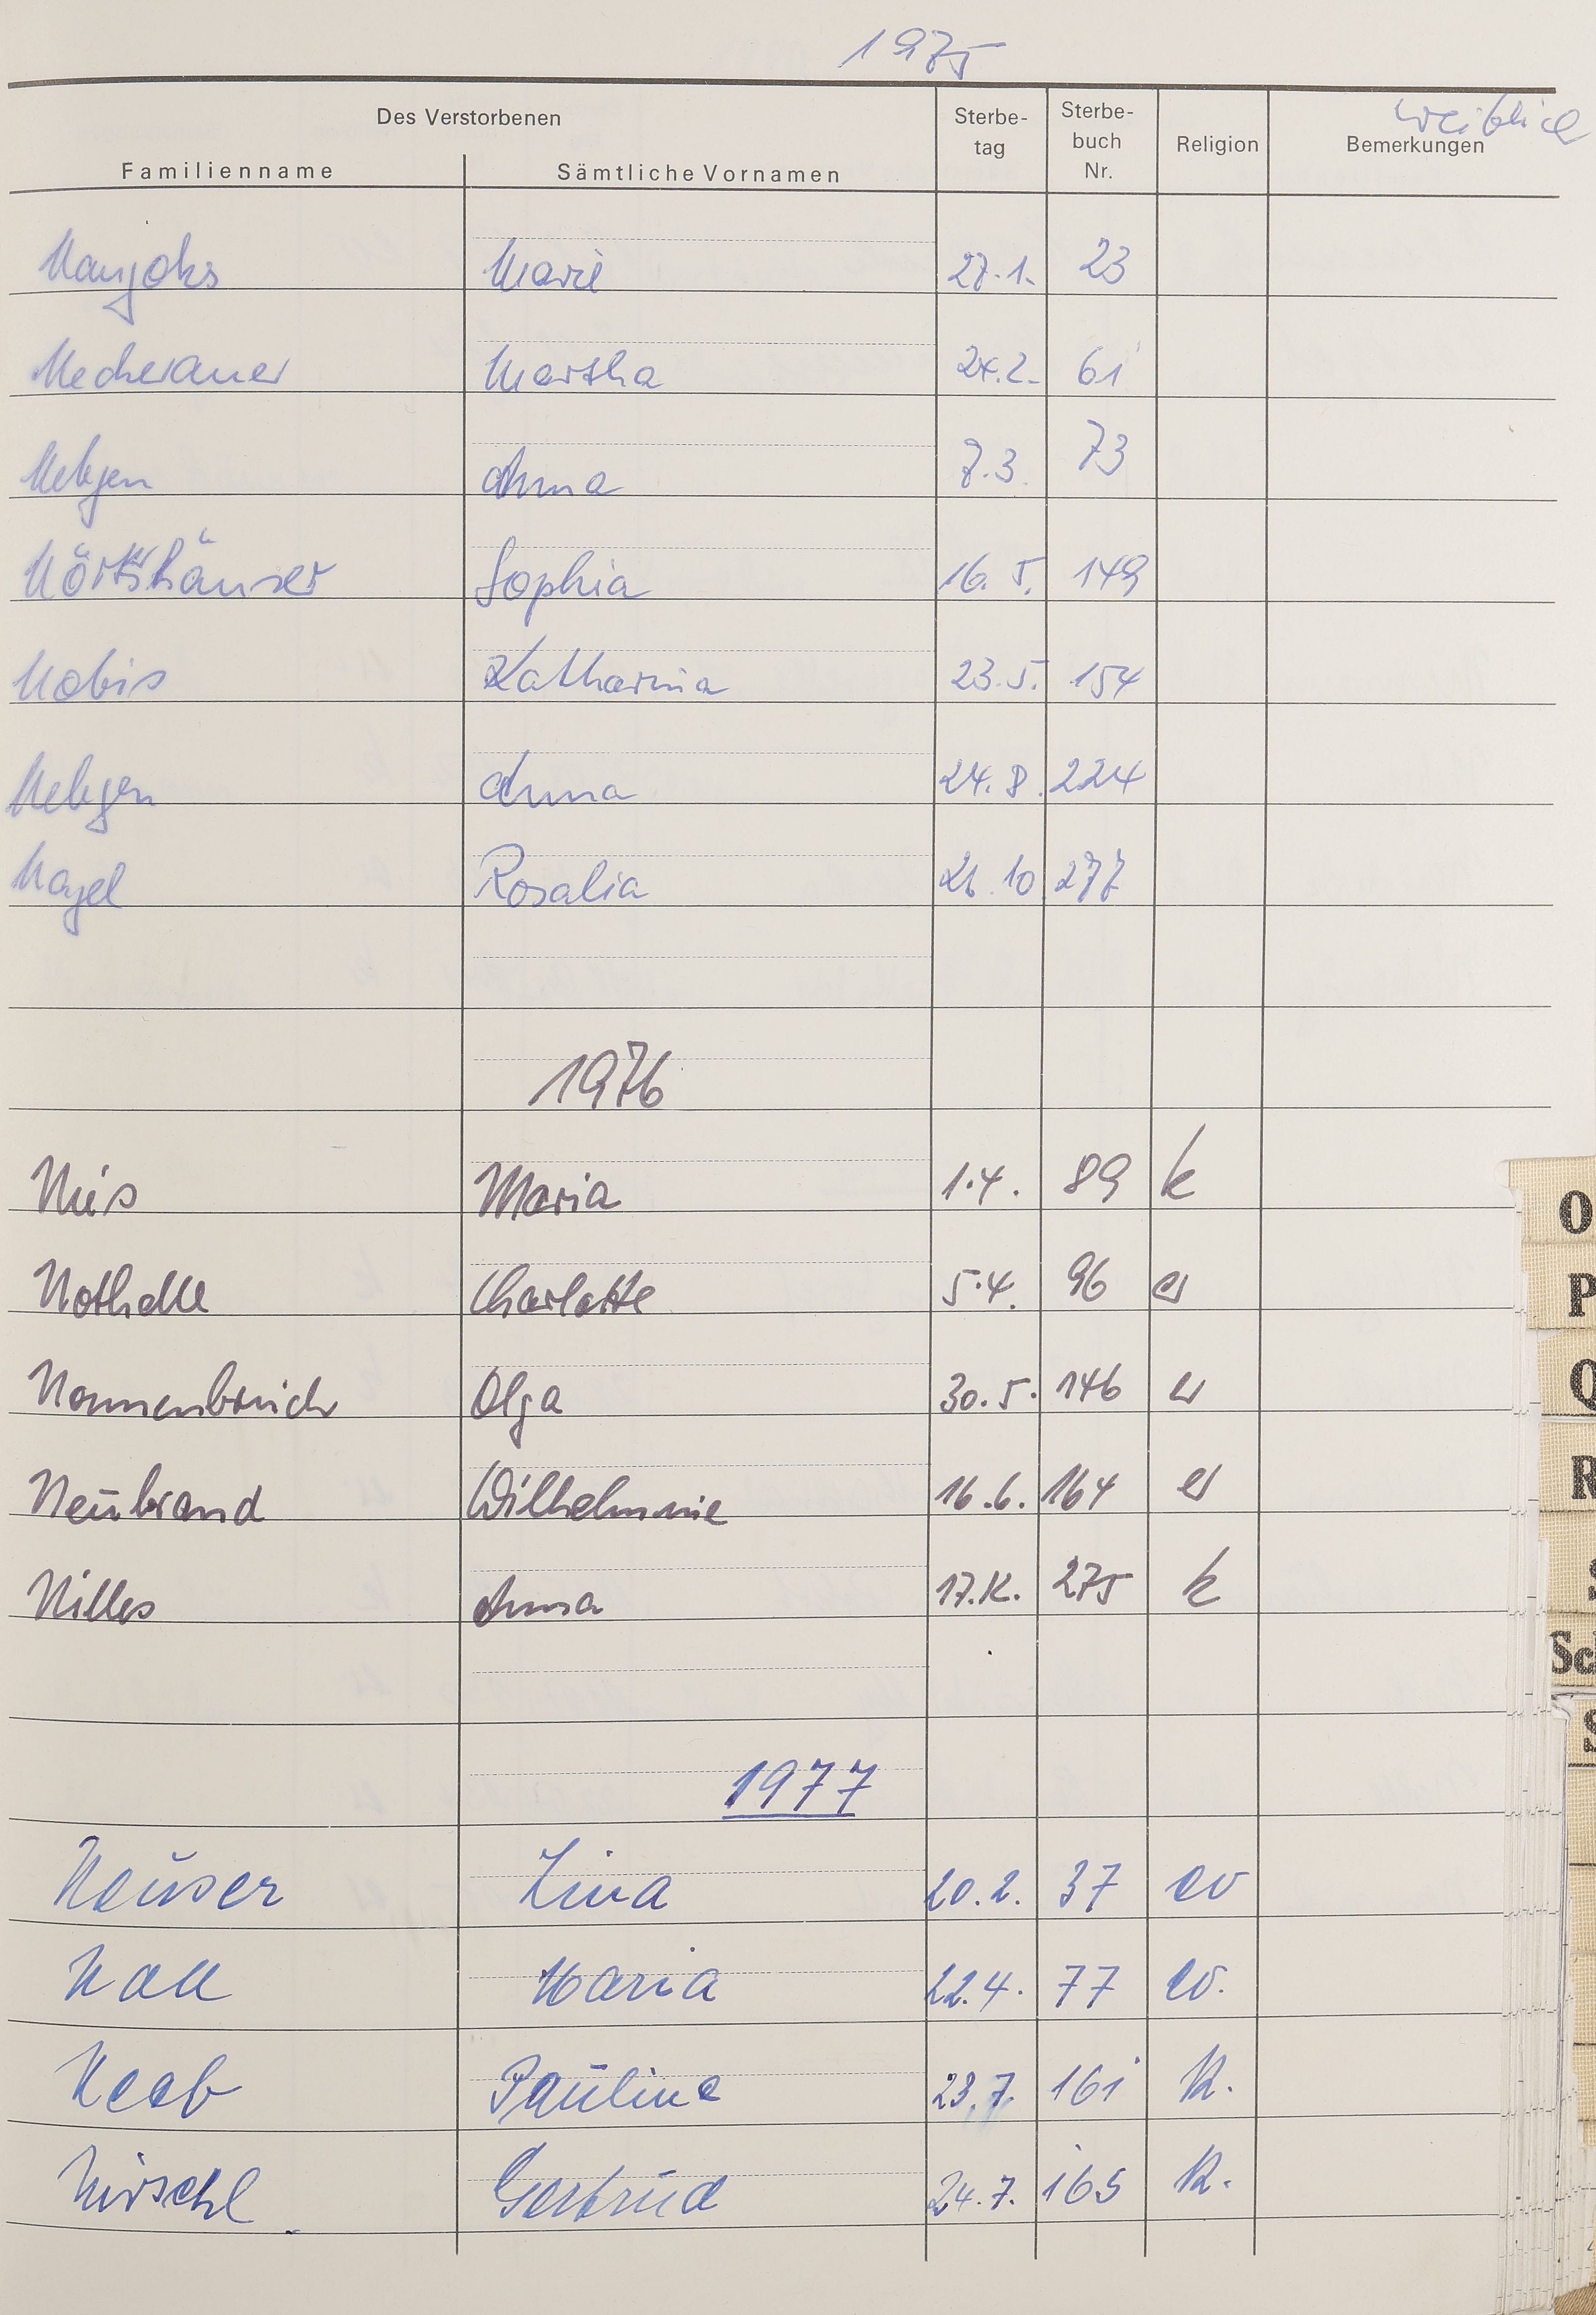 1975
weiblich
Des Verstorbenen
Familienname Sämtliche Vornamen Sterbe-tag Sterbe-buch Nr. Religion Bemerkungen
Naujoks Marie 27.1. 23
Necherauer Martha 24.2. 61
Nebgen Anna 7.3. 73
Nörtershäuser Sophia 16.5. 149
Nobis Katharina 23.5. 154
Nebgen Anna 24.8. 224
Nagel Rosalia 26.10 277
1976
Nies Maria 1.4. 89 k
Nothelle Charlotte 5.4. 96 ev
Nonnenbruch Olga 30.5. 146 ev
Neubrand Wilhelmine 16.6. 164 ev
Nilles Anna 17.12. 275 k
1977
Neuser Lina 20.2. 37 ev
Noll Maria 22.4. 77 ev.
Neeb Pauline 23.7. 161 k.
Nirschl Gertrud 24.7. 165 k.
O
P
Q
R
S
Sc
S